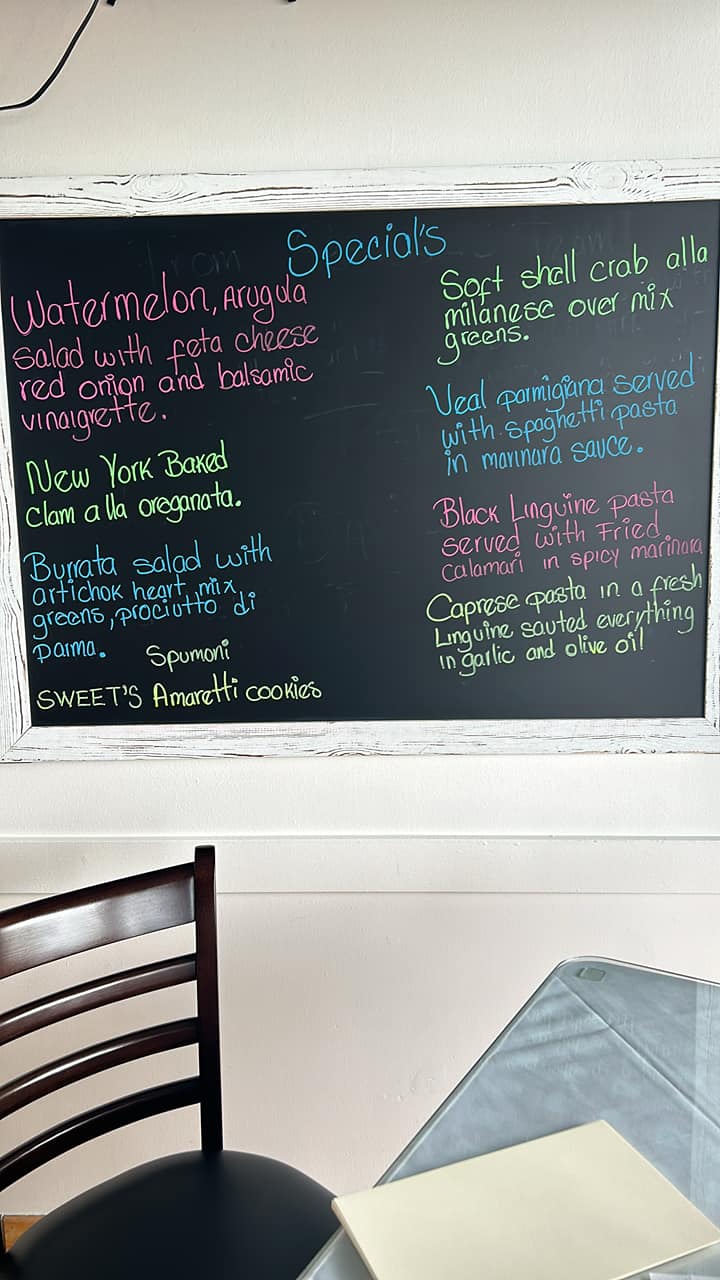 Special's
Watermelon, Arugula
Salad with feta cheese
red onion and balsamic
vinaigrette.
New York Baked
Clam alla oreganata.
Burrata salad with
artichok heart, mix
greens, prociutto di
parma.
Spumoni
SWEET'S Amaretti cookies
Soft shell crab alla
milanese over mix
greens.
Veal parmigiana served
with spaghetti pasta
in marinara sauce.
Black Linguine pasta
served with Fried
calamari in spicy marinara
Caprese pasta in a fresh
Linguine sauted everything
in garlic and olive oil